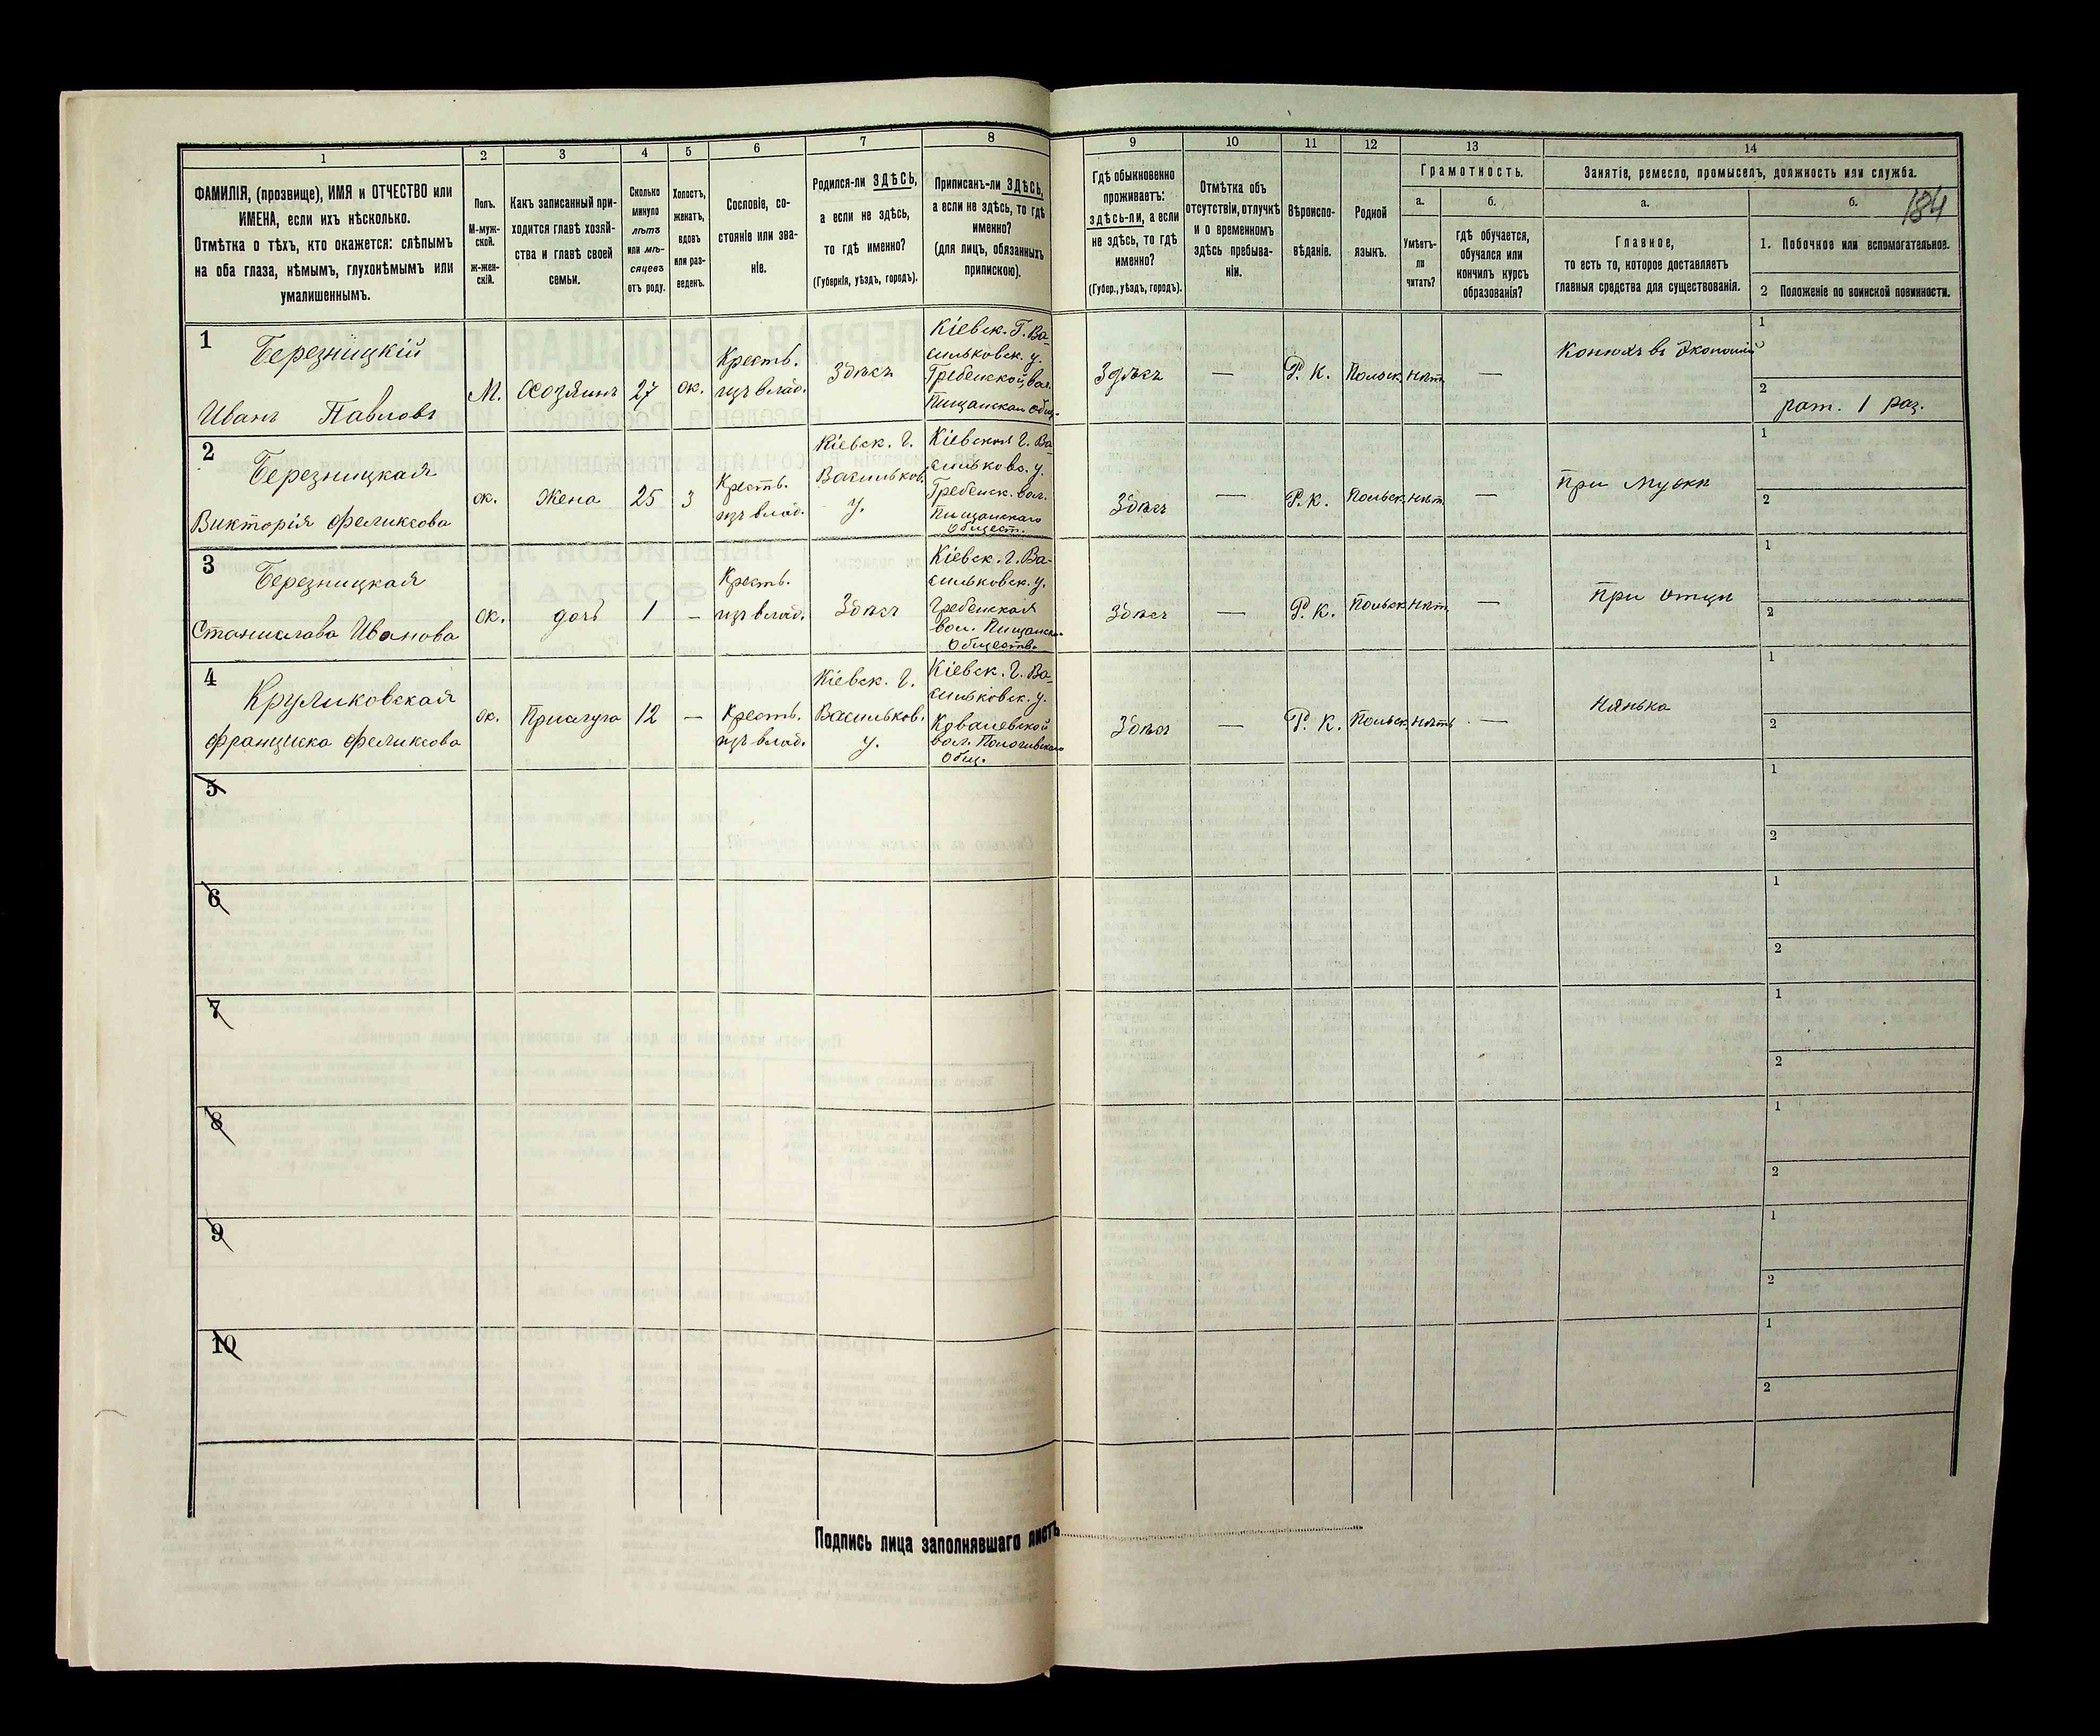 1
2
3
4
5
6
7
8
9
10
11
12
13
14
ФАМИЛІЯ, (прозвище), ИМЯ и ОТЧЕСТВО или
ИМЕНА, если ихъ нѣсколько.
Отмѣтка о тѣхъ, кто окажется: слѣпымъ
на оба глаза, нѣмымъ, глухонѣмымъ или
умалишеннымъ.
Полъ.
М-муж-
ской.
ж-жен-
скій.
Какъ записанный при-
ходится главѣ хозяй-
ства и главѣ своей
семьи.
Сколько
минуло
лѣтъ
или мѣ-
сяцевъ
отъ роду.
Холостъ,
женатъ,
вдовъ
или раз-
веденъ.
Сословіе, со-
стояніе или зва-
ніе.
Родился-ли ЗДѢСЬ,
а если не здѣсь,
то гдѣ именно?
(Губернія, уѣздъ, городъ).
Приписанъ-ли ЗДѢСЬ,
а если не здѣсь, то гдѣ
именно?
(для лицъ, обязанныхъ
припискою).
Гдѣ обыкновенно
проживаетъ:
здѣсь-ли, а если
не здѣсь, то гдѣ
именно?
(Губер., уѣздъ, городъ).
Отмѣтка объ
отсутствіи, отлучкѣ
и о временномъ
здѣсь пребыва-
ніи.
Вѣроиспо-
вѣданіе.
Родной
языкъ.
Грамотность.
а.
Умѣетъ-
ли
читать?
б.
гдѣ обучается,
обучался или
кончилъ курсъ
образованія?
Занятіе, ремесло, промыселъ, должность или служба.
а.
Главное,
то есть то, которое доставляетъ
главныя средства для существованія.
б.
184
1. Побочное или вспомогательное.
2 Положеніе по воинской повинности.
1
Березницкій
Иванъ Павловъ
М.
Хозяинъ
27
ж.
Крестъ.
изъ влад.
Здѣсь
Кіевск. Г. Ва-
сильковск. у.
Гребенской вол.
Пищанскаго общ.
Здѣсь
—
Р. К.
Польск.
нѣтъ
—
Конюхъ въ Экономіи
1
2
рат. 1 раз.
2
Березницкая
Викторія Феликсова
ж.
Жена
25
з
Крестъ.
изъ влад.
Кіевск. г.
Васильков.
у.
Кіевской г. Ва
сильково. у.
Гребенск. вол.
Пищанскаго
Общест.
Здѣсь
—
Р. К.
Польск.
нѣт.
—
При Мужѣ
1
2
3
Березницкая
Станислава Иванова
ж.
дочь
1
—
Крестъ.
изъ влад.
Здѣсь
Кіевск. г. Ва-
сильковск. у.
Гребенская
вол. Пищанск.
Обществ.
Здѣсь
—
Р. К.
Польск.
нѣт.
—
При отцѣ
1
2
4
Круликовская
Франциска Феликсова
ж.
Прислуга
12
—
Крестъ.
изъ влад.
Кіевск. г.
Васильков.
у.
Кіевск. г. Ва-
сильковск. у.
Ковалевской
вол.
Общ.
Здѣсь
—
Р. К.
Польск.
нѣтъ
—
Нянька
1
2
5
1
2
6
1
2
7
1
2
8
1
2
9
1
2
10
1
2
Подпись лица заполнявшаго листъ